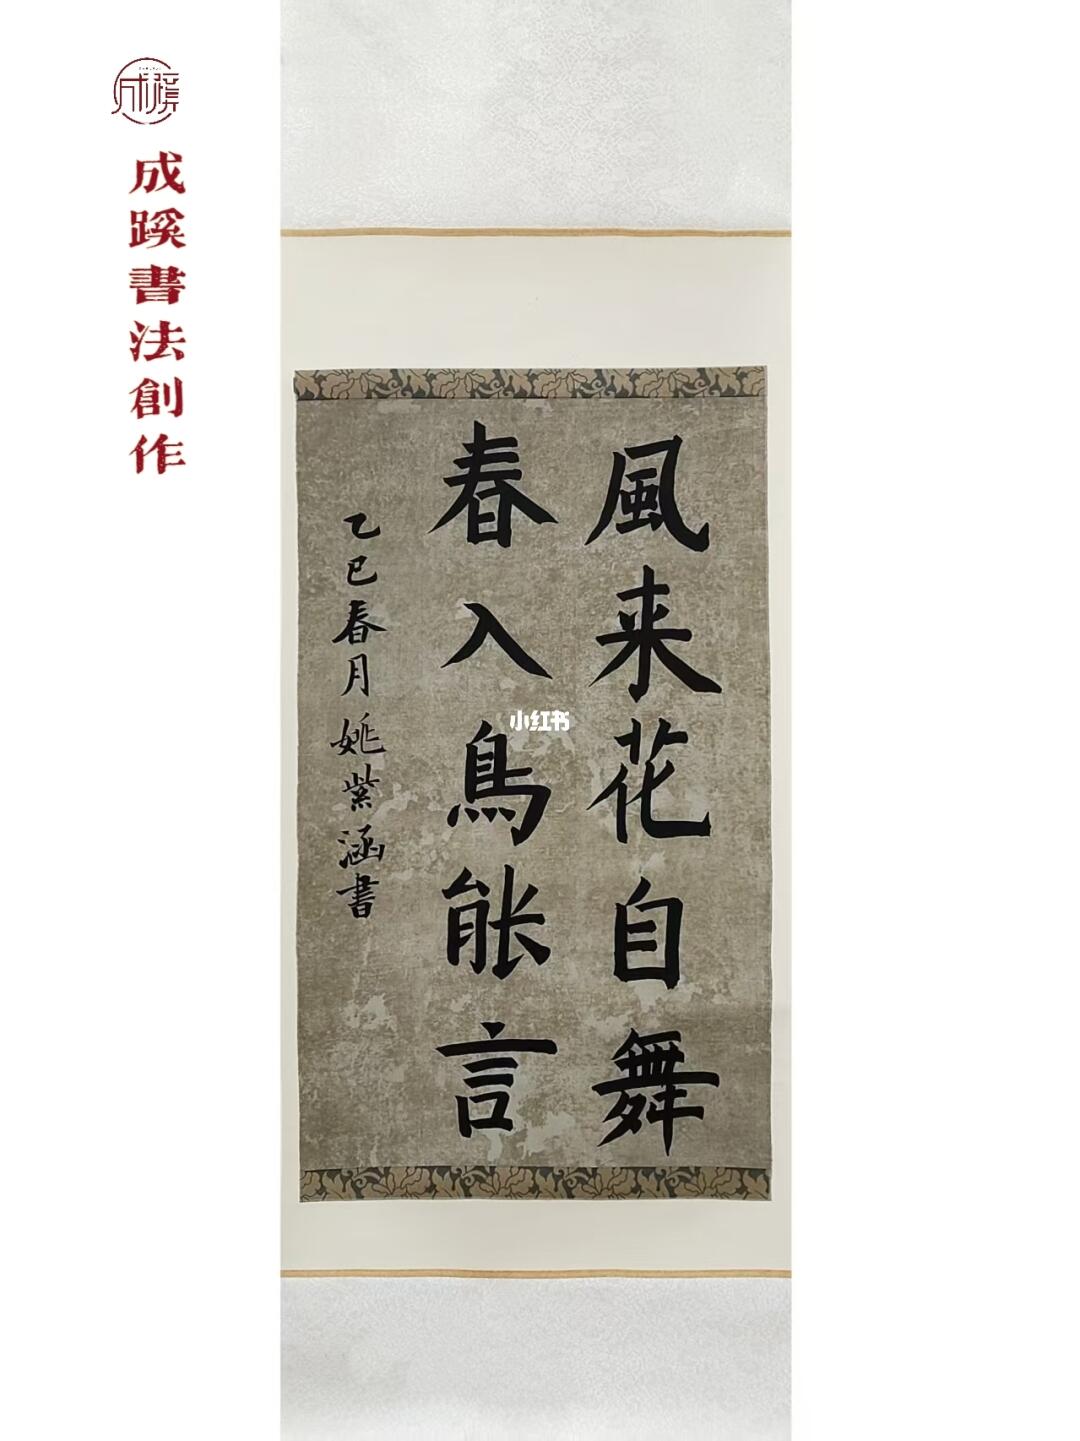 成蹊
成蹊書法創作
風来花自舞
春入鳥能言
乙巳春月姚紫涵書
小红书